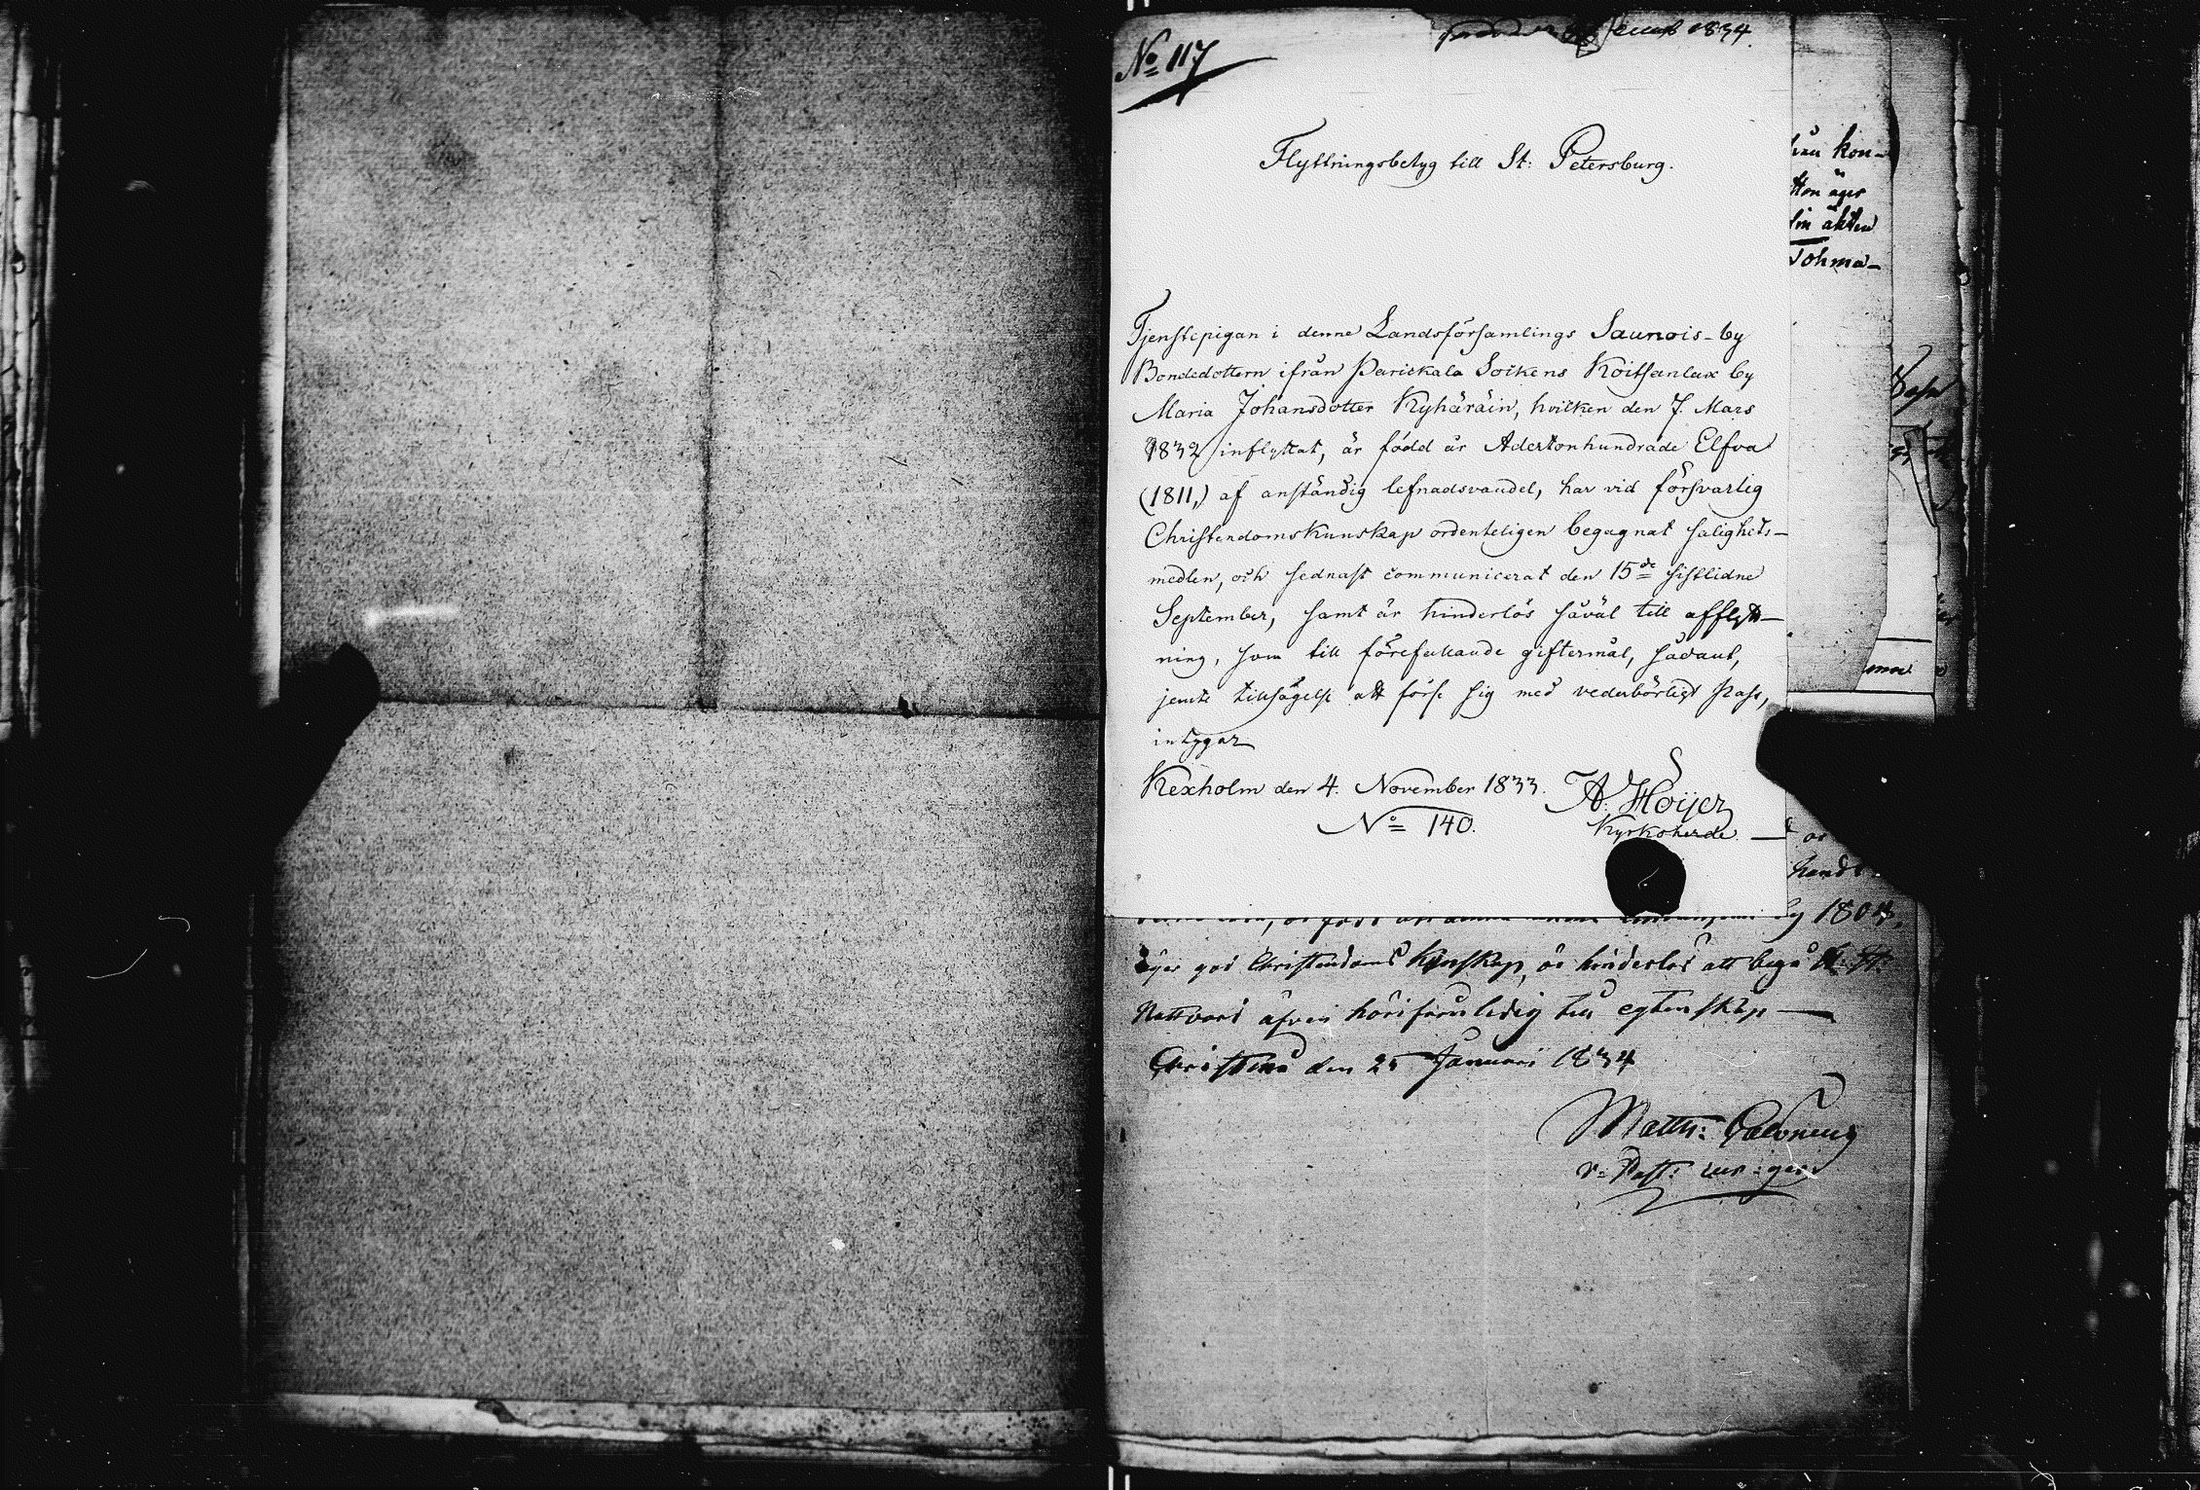 No 117
1834.
Flyttningsbetyg till St: Petersburg.
Tjenstepigan i denne Landsförsamlings Saunois-by
Bondedottern ifrån Parickala Sockens Koitsanlax by
Maria Johansdotter Kyhäräin, hvilken den 7. Mars
1832 inflyttat, är född år Adertonhundrade Elfva
(1811,) af anständig lefnadsvandel, har vid försvarlig
Christendomskunskap ordenteligen begagnat salighets-
medlen, och sednast communicerat den 15de sistlidne
September, samt är hinderlös såväl till afflytt-
ning, som till förefallande giftermål, sådant,
jemte tillsägelse att förse sig med vederbörligt Pass,
intygar
Kexholm den 4. November 1833. A. Hoijer
No 140. Kyrkoherde
kon-
äger
äkten
Tohma-
by 180
äger god Christendoms Kunskap, är hinderlös att begå
Nattvard äfven härifrån ledig till egtenskap
Christina den 25 Januari 1834
Matth:
v: Past: